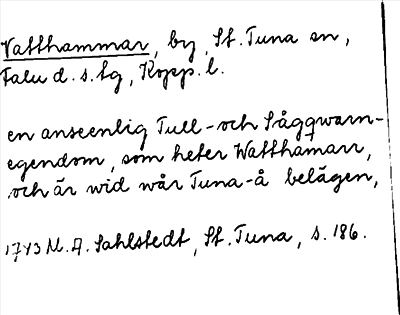 Vatthammar, by, St. Tuna sn,
Falu d. s. lg, Kopp. l.
en anseenlig Tull-och Sågqwarn-
egendom, som heter Watthamarr,
och är wid wår Tuna-å belägen,
1743 M. A. Sahlstedt, St. Tuna, s. 186.